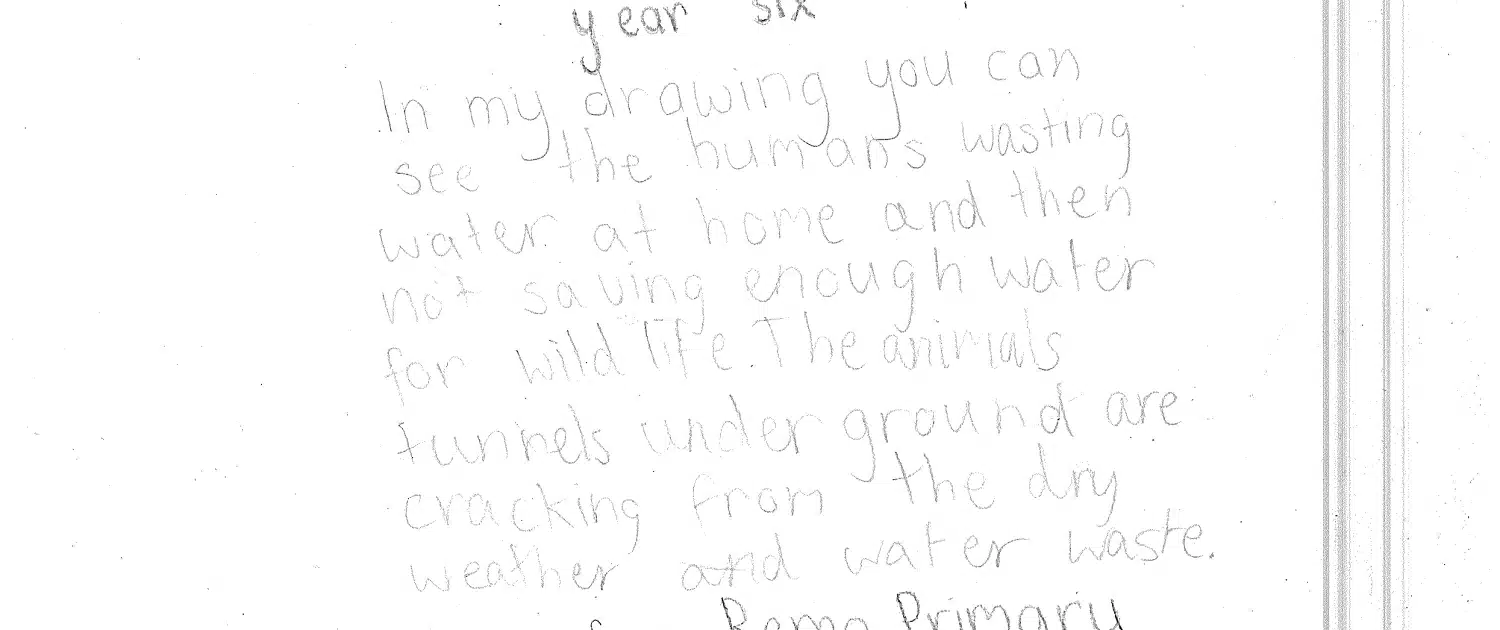 year six
In my drawing you can
see the humans wasting
water at home and then
not saving enough water
for wild life. The animals
tunnels under ground are
cracking from the dry
weather and water waste.
Primary